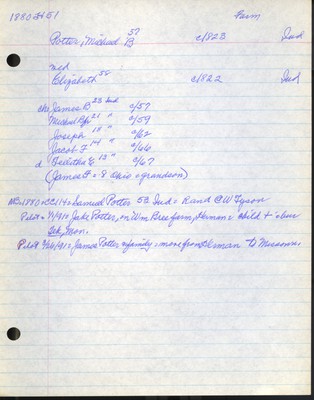 1880 H 51
Farm
Potter, Michael B 57 c/1823 Ind
med
Elizabeth 58 c/1822 Ind
chs James B 23 Ind c/57
Michael 21 " c/59
Joseph 18 " c/62
Jacob F 14 " c/66
d Telitha E 13 " c/67
(James F = 8 Ohio = grandson)
NB: 1880 Samuel Potter 53 Ind = R and C W Tyson
Pilot = 7/1910 Jake Potter, on Wm Bree farm, Herman = child + over
Feb, Mon.
Pilot 3/24/1910 James Potter + family = move from Herman to Missouri